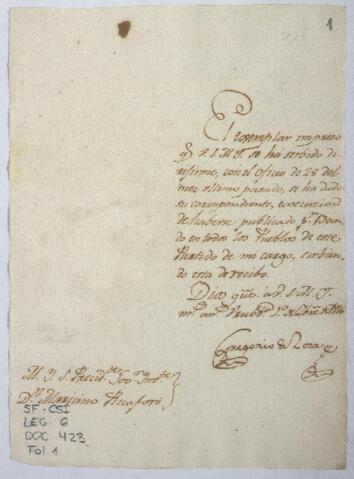 1
El exemplar impreso
q.e V.S.M.Y. se ha serbido di-
rijirme, con el oficio de 28 del
mez ultimo pasado, se ha dado
su correspondiente
de haberse publicado p.r Ban-
do en todos los Pueblos de este
Partido de mi cargo, sirbien-
do esta de recibo.
Dios gũe. à V.S.M.Y.
m.s a.s
Gregorio de Roza
M. Y. S. Presid.te Gov.r Int.te
D.n Mariano Ricafort
SF-CSI
LEG. 6
DOC. 423
Fol 1